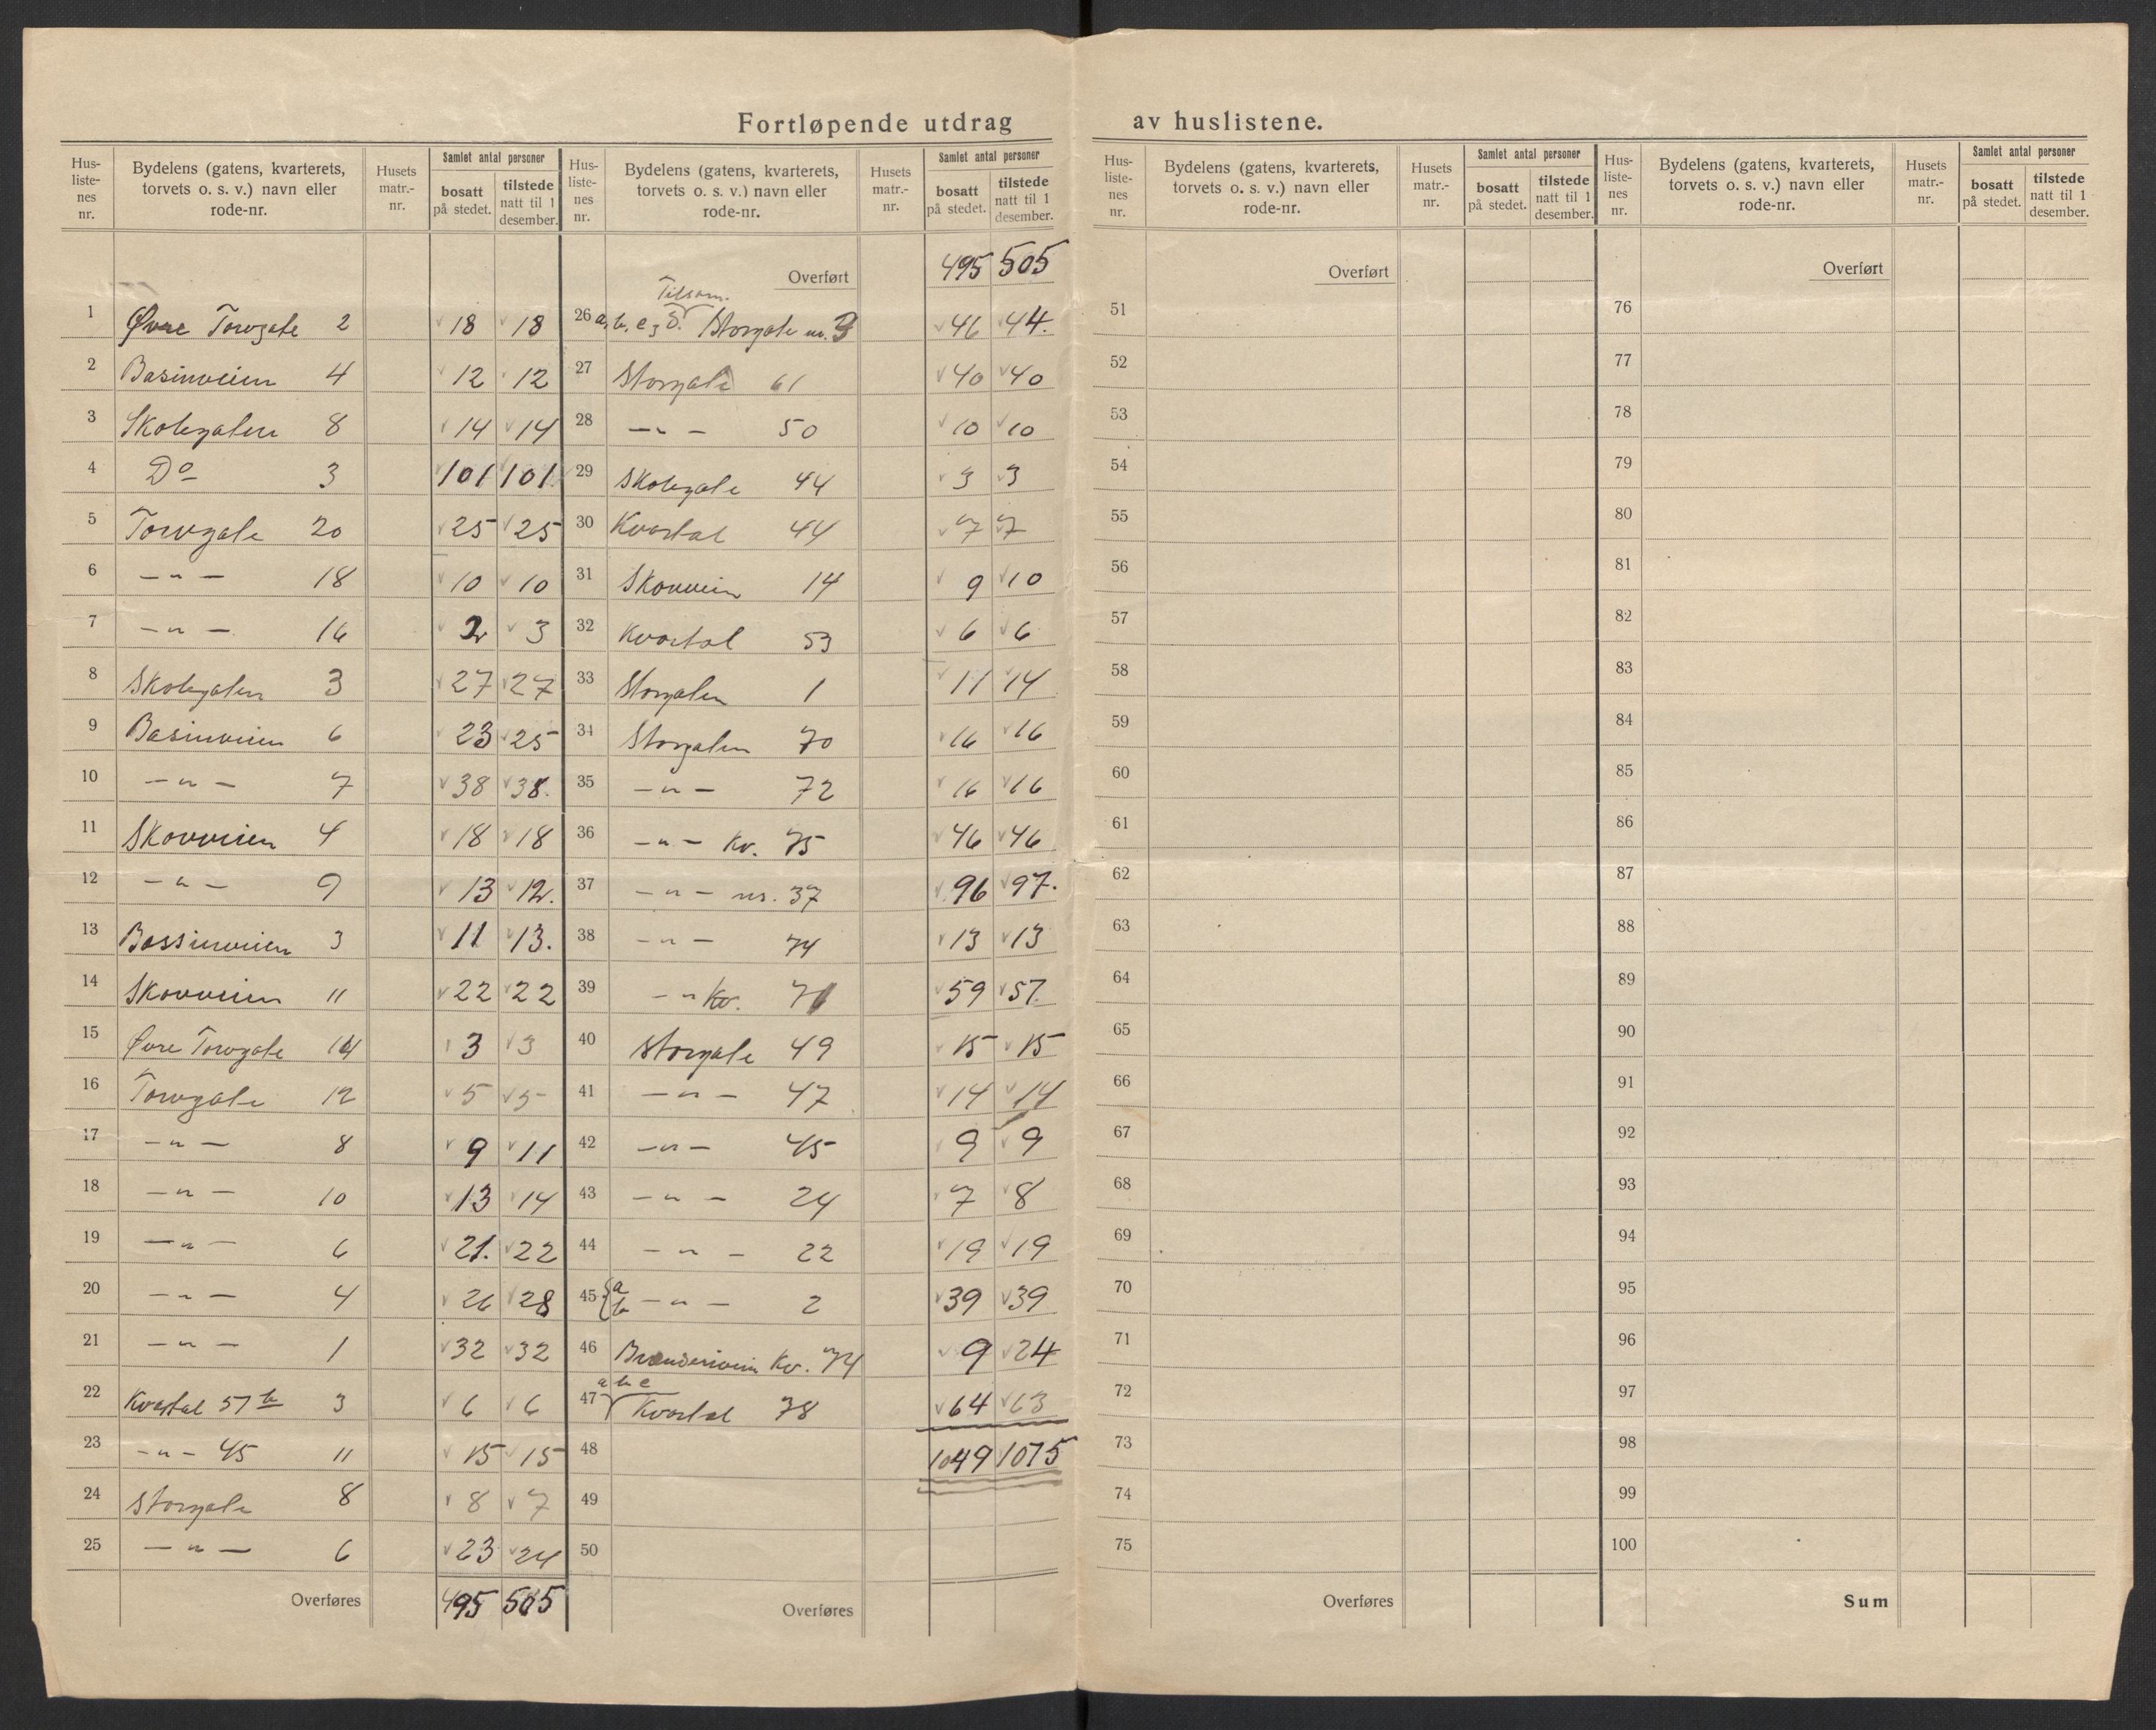 Fortløpende utdrag av huslistene.
Hus-liste-nes nr. | Bydelens (gatens, kvarterets, torvets o. s. v.) navn eller rode-nr. | Husets matr.-nr. | Samlet antal personer | bosatt på stedet. | tilstede natt til 1 desember.
1 Øvre Torvgate 2 18 18
2 Basinveien 4 12 12
3 Skolegaten 8 14 14
4 Do 3 101 101
5 Torvgate 20 25 25
6 — " — 18 10 10
7 — " — 16 2 3
8 Skolegaten 3 27 27
9 Basinveien 6 23 25
10 — " — 7 38 38.
11 Skovveien 4 18 18
12 — " — 9 13 12.
13 Bassinveien 3 11 13.
14 Skovveien 11 22 22
15 Øvre Torvgate 14 3 3
16 Torvgate 12 5 5
17 — " — 8 9 11
18 — " — 10 13 14
19 — " — 6 21. 22
20 — " — 4 26 28
21 — " — 1 32 32
22 Kvartal 57 b 3 6 6
23 — " — 45 11 15 15
24 Storgate 8 8 7
25 — " — 6 23 24
Overføres 495 505
Hus-liste-nes nr. | Bydelens (gatens, kvarterets, torvets o. s. v.) navn eller rode-nr. | Husets matr.-nr. | Samlet antal personer | bosatt på stedet. | tilstede natt til 1 desember.
Overført 495 505
Tilsam.
26 a, b, c, d. Storgate nr. 3 46 44.
27 Storgate 61 40 40
28 — " — 50 10 10
29 Skolegate 44 3 3
30 Kvartal 44 7 7
31 Skovveien 14 9 10
32 Kvartal 53 6 6
33 Storgaten 1 11 14
34 Storgaten 70 16 16
35 — " — 72 16 16
36 — " — Kv. 75 46 46
37 — " — nr. 37 96 97.
38 — " — 74 13 13
39 — " Kv. 71 59 57.
40 Storgate 49 15 15
41 — " — 47 14 14
42 — " — 45 9 9
43 — " — 24 7 8
44 — " — 22 19 19
45 { a b — " — 2 39 39
46 Kv. 74 9 24
47 a b c Kvartal 78 64 63
48 1049 1075
49
50
Overføres
Hus-liste-nes nr. | Bydelens (gatens, kvarterets, torvets o. s. v.) navn eller rode-nr. | Husets matr.-nr. | Samlet antal personer | bosatt på stedet. | tilstede natt til 1 desember.
Overført
51
52
53
54
55
56
57
58
59
60
61
62
63
64
65
66
67
68
69
70
71
72
73
74
75
Overføres
Hus-liste-nes nr. | Bydelens (gatens, kvarterets, torvets o. s. v.) navn eller rode-nr. | Husets matr.-nr. | Samlet antal personer | bosatt på stedet. | tilstede natt til 1 desember.
Overført
76
77
78
79
80
81
82
83
84
85
86
87
88
89
90
91
92
93
94
95
96
97
98
99
100
Sum